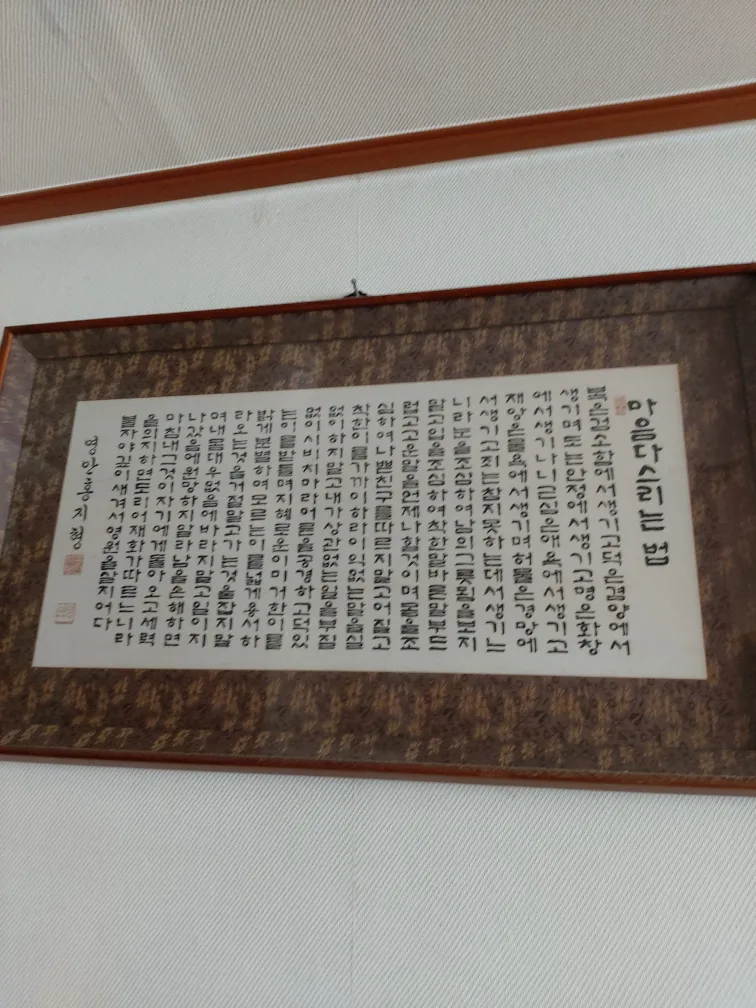 마음다스리는 법
복은검소함에서생기고덕은겸양에서
생기며도는안정에서생기고명은화창
에서생기나니근심은애욕에서생기고
재앙은물욕에서생기며허물은경망에
서생기고죄는참지못하는데서생기느
니라눈을조심하여남의그릇됨을보지
말고입을조심하여착한말바른말부드
럽고고운말을언제나할것이며몸을조
심하여나쁜친구를따르지말고어질고
착한이를가까이하라이익없는말을실
없이하지말고내게상관없는일을부질
없이시비치말라어른을공경하고덕있
는이를받들며지혜로운이미거한이를
밝게분별하며모르는이를넓게용서하
라오는것을거절말고가는것을잡지말
며내몸대우없음에바라지말고일이지
나갔음에원망하지말라남을손해하면
마침내그것이자기에게돌아오고세력
을의지하면도리어재화가따르느니라
불자야이글새겨서영원을살지어다